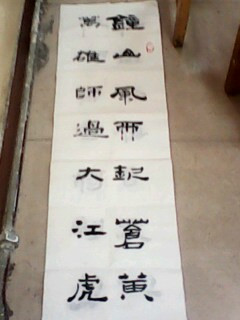 鐘山風雨起蒼黃
萬雄師過大江虎